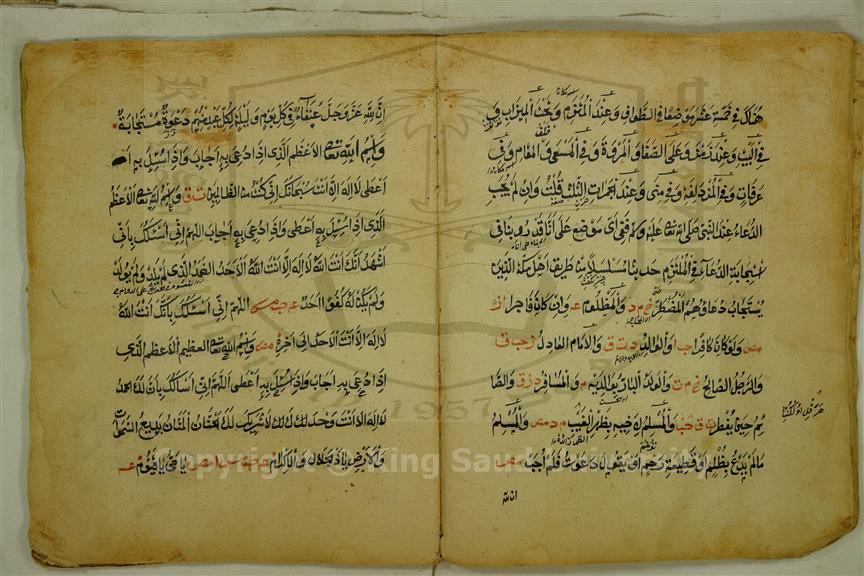 هناك في خمسة عشر موضعا في الطواف وعند الملتزم وتحت الميزاب و
في البيت وعند زمزم وعلى الصفا والمروة وفي المسعى وخلف المقام وفي
عرفات وفي المزدلفة وفي منى وعند الجمرات الثلث قلت وان لم يجب
الدعاء عند النبي صلى الله عليه وسلم ففي اى موضع على انا قد روينا في
استجابة الدعاء في الملتزم حديثا مسلسلا من طريق اهل مكة الذين
يستجاب دعاؤهم المضطر خ م د والمظلوم ع وان كان فاجرا
ولو كان كافرا والوالد د ت ق والامام العادل ت حب ق
والرجل الصالح خ م ق والولد البار بوالديه م والمسافر د ز ق والصا
ئم حين يفطر ت ق حب والمسلم لاخيه بظهر الغيب م د مص والمسلم
مالم يدع بظلم او قطيعة رحم او يقول دعوت فلم اجب مص
ان لله
ان لله عز وجل عتقاء في كل يوم وليلة لكل عبد منهم دعوة مستجابة
واسم الله تعالى الاعظم الذى اذا دعى به اجاب واذا سئل به
اعطى لا اله الا انت سبحانك انى كنت من الظالمين واسم الله تعالى الاعظم
الذى اذا سئل به اعطى واذا دعى به اجاب اللهم انى اسئلك بانى
اشهد انك انت الله لا اله الا انت الله الاحد الصمد الذى لم يلد ولم يولد
ولم يكن له كفوا احد عه حب مس اللهم انى اسئلك بانك انت الله
لا اله الا انت الاحد الى اخره مص واسم الله تعالى العظيم الاعظم الذى
اذا دعى به اجاب واذا سئل به اعطى اللهم انى اسئلك بان لك الحمد
لا اله الا انت وحدك لا شريك لك الحنان المنان بديع السموات
والارض يا ذا الجلال والاكرام يا حي يا قيوم عه
Copyright © King Saud University
1957